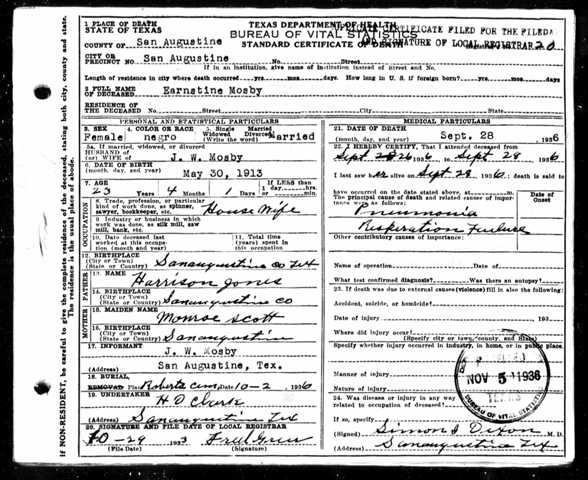 1 PLACE OF DEATH
STATE OF TEXAS
TEXAS DEPARTMENT OF HEALTH
BUREAU OF VITAL STATISTICS
STANDARD CERTIFICATE OF DEATH
CERTIFICATE FILED FOR THE FILE
SIGNATURE OF LOCAL REGISTRAR 20
COUNTY OF San Augustine
CITY OR PRECINCT NO San Augustine No. Street
If in an institution, give name of institution instead of street and No.
Length of residence in city where death occurred yrs. mos. days. How long in U. S. if foreign born? yrs. mos. days.
2 FULL NAME OF DECEASED Earnstine Mosby
RESIDENCE OF THE DECEASED No. Street City State
PERSONAL AND STATISTICAL PARTICULARS
3. SEX Female
4. COLOR OR RACE negro
5. Single Married Widowed Divorced Married
5a. If married, widowed, or divorced
HUSBAND OF (or) WIFE OF J. W. Mosby
6. DATE OF BIRTH (month, day, and year) May 30, 1913
7. AGE 23 Years 4 Months 1 Days If LESS than 1 day, hrs. min.
OCCUPATION
8. Trade, profession, or particular kind of work done, as spinner, sawyer, bookkeeper, etc. House Wife
9. Industry or business in which work was done, as silk mill, saw mill, bank, etc.
10. Date deceased last worked at this occupation (month and year)
11. Total time (years) spent in this occupation
12. BIRTHPLACE (City or Town) (State or Country) Sanaugustine Co Tex
FATHER
13. NAME Harrison Jones
14. BIRTHPLACE (City or Town) (State or Country) Sanaugustine Co
MOTHER
15. MAIDEN NAME Monroe Scott
16. BIRTHPLACE (City or Town) (State or Country) Sanaugustine
17. INFORMANT J. W. Mosby
(Address) San Augustine, Tex.
18. BURIAL, REMOVAL Place Roberts Cem. Date 10-2 1936
19. UNDERTAKER H D Clark
(Address) Sanaugustine Tex
20. SIGNATURE AND FILE DATE OF LOCAL REGISTRAR
10-29 193
(File Date) (Signature)
MEDICAL PARTICULARS
21. DATE OF DEATH (month, day, and year) Sept. 28 1936
22. I HEREBY CERTIFY, That I attended deceased from
Sept 26 1936, to Sept 28 1936
I last saw her alive on Sept 28 1936; death is said to
have occurred on the date stated above, at m.
The principal cause of death and related causes of importance were as follows: Date of Onset
Pneumonia
Respiration Failure
Other contributory causes of importance:
Name of operation Date of
What test confirmed diagnosis? Was there an autopsy?
23. If death was due to external causes (violence) fill in also the following:
Accident, suicide, or homicide?
Date of injury 193
Where did injury occur?
(Specify city or town, county, and State)
Specify whether injury occurred in industry, in home, or in public place.
Manner of injury
Nature of injury
24. Was disease or injury in any way related to occupation of deceased?
If so, specify
(Signed) Simon Dixon M. D.
(Address) Sanaugustine Tex
NOV 5 1936
TEXAS
BUREAU OF VITAL STATISTICS
If NON-RESIDENT, be careful to give the complete residence of the deceased, stating both city, county and state.
It is the usual place of abode.